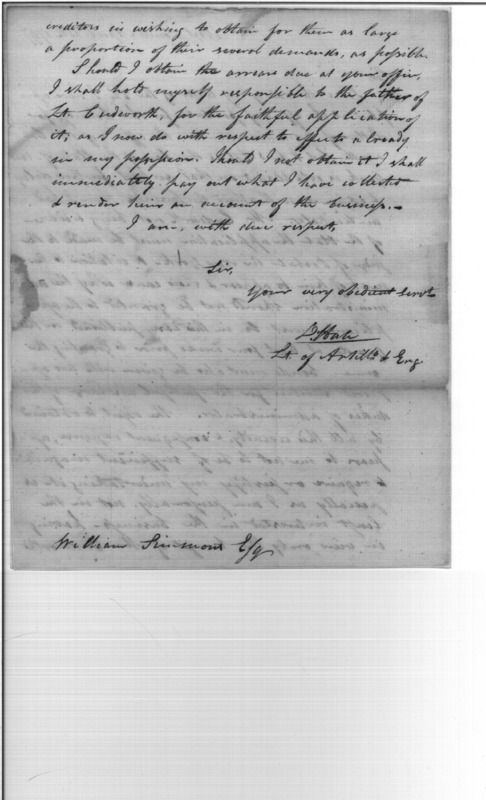 creditors in wishing to obtain for them as large
a proportion of their several demands, as possible.
Should I obtain the arrears due at your office,
I shall hold myself responsible to the father of
Lt. Cudworth, for the faithful application of
it; as I now do with respect to effects already
in my possession. Should I not obtain it I shall
immediately pay out what I have collected
& render him an account of the business.—
I am, with due respect,
Sir,
Your very obedient Servt
Lt. of Artills & Eng
William Simmons Esq